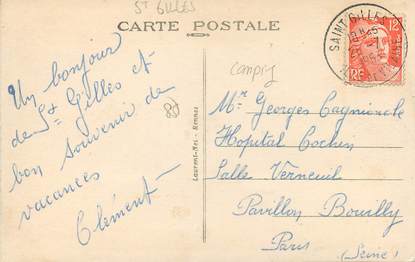 St GILLES
CARTE POSTALE
SAINT GILLES
12F
RF
Un bonjour
de St Gilles et
bon souvenir de
vacances
Clément
Laurent-Nel - Rennes
Mr Georges
Hopital Cochin
Salle Verneuil
Pavillon Bouilly
Paris
(Seine)